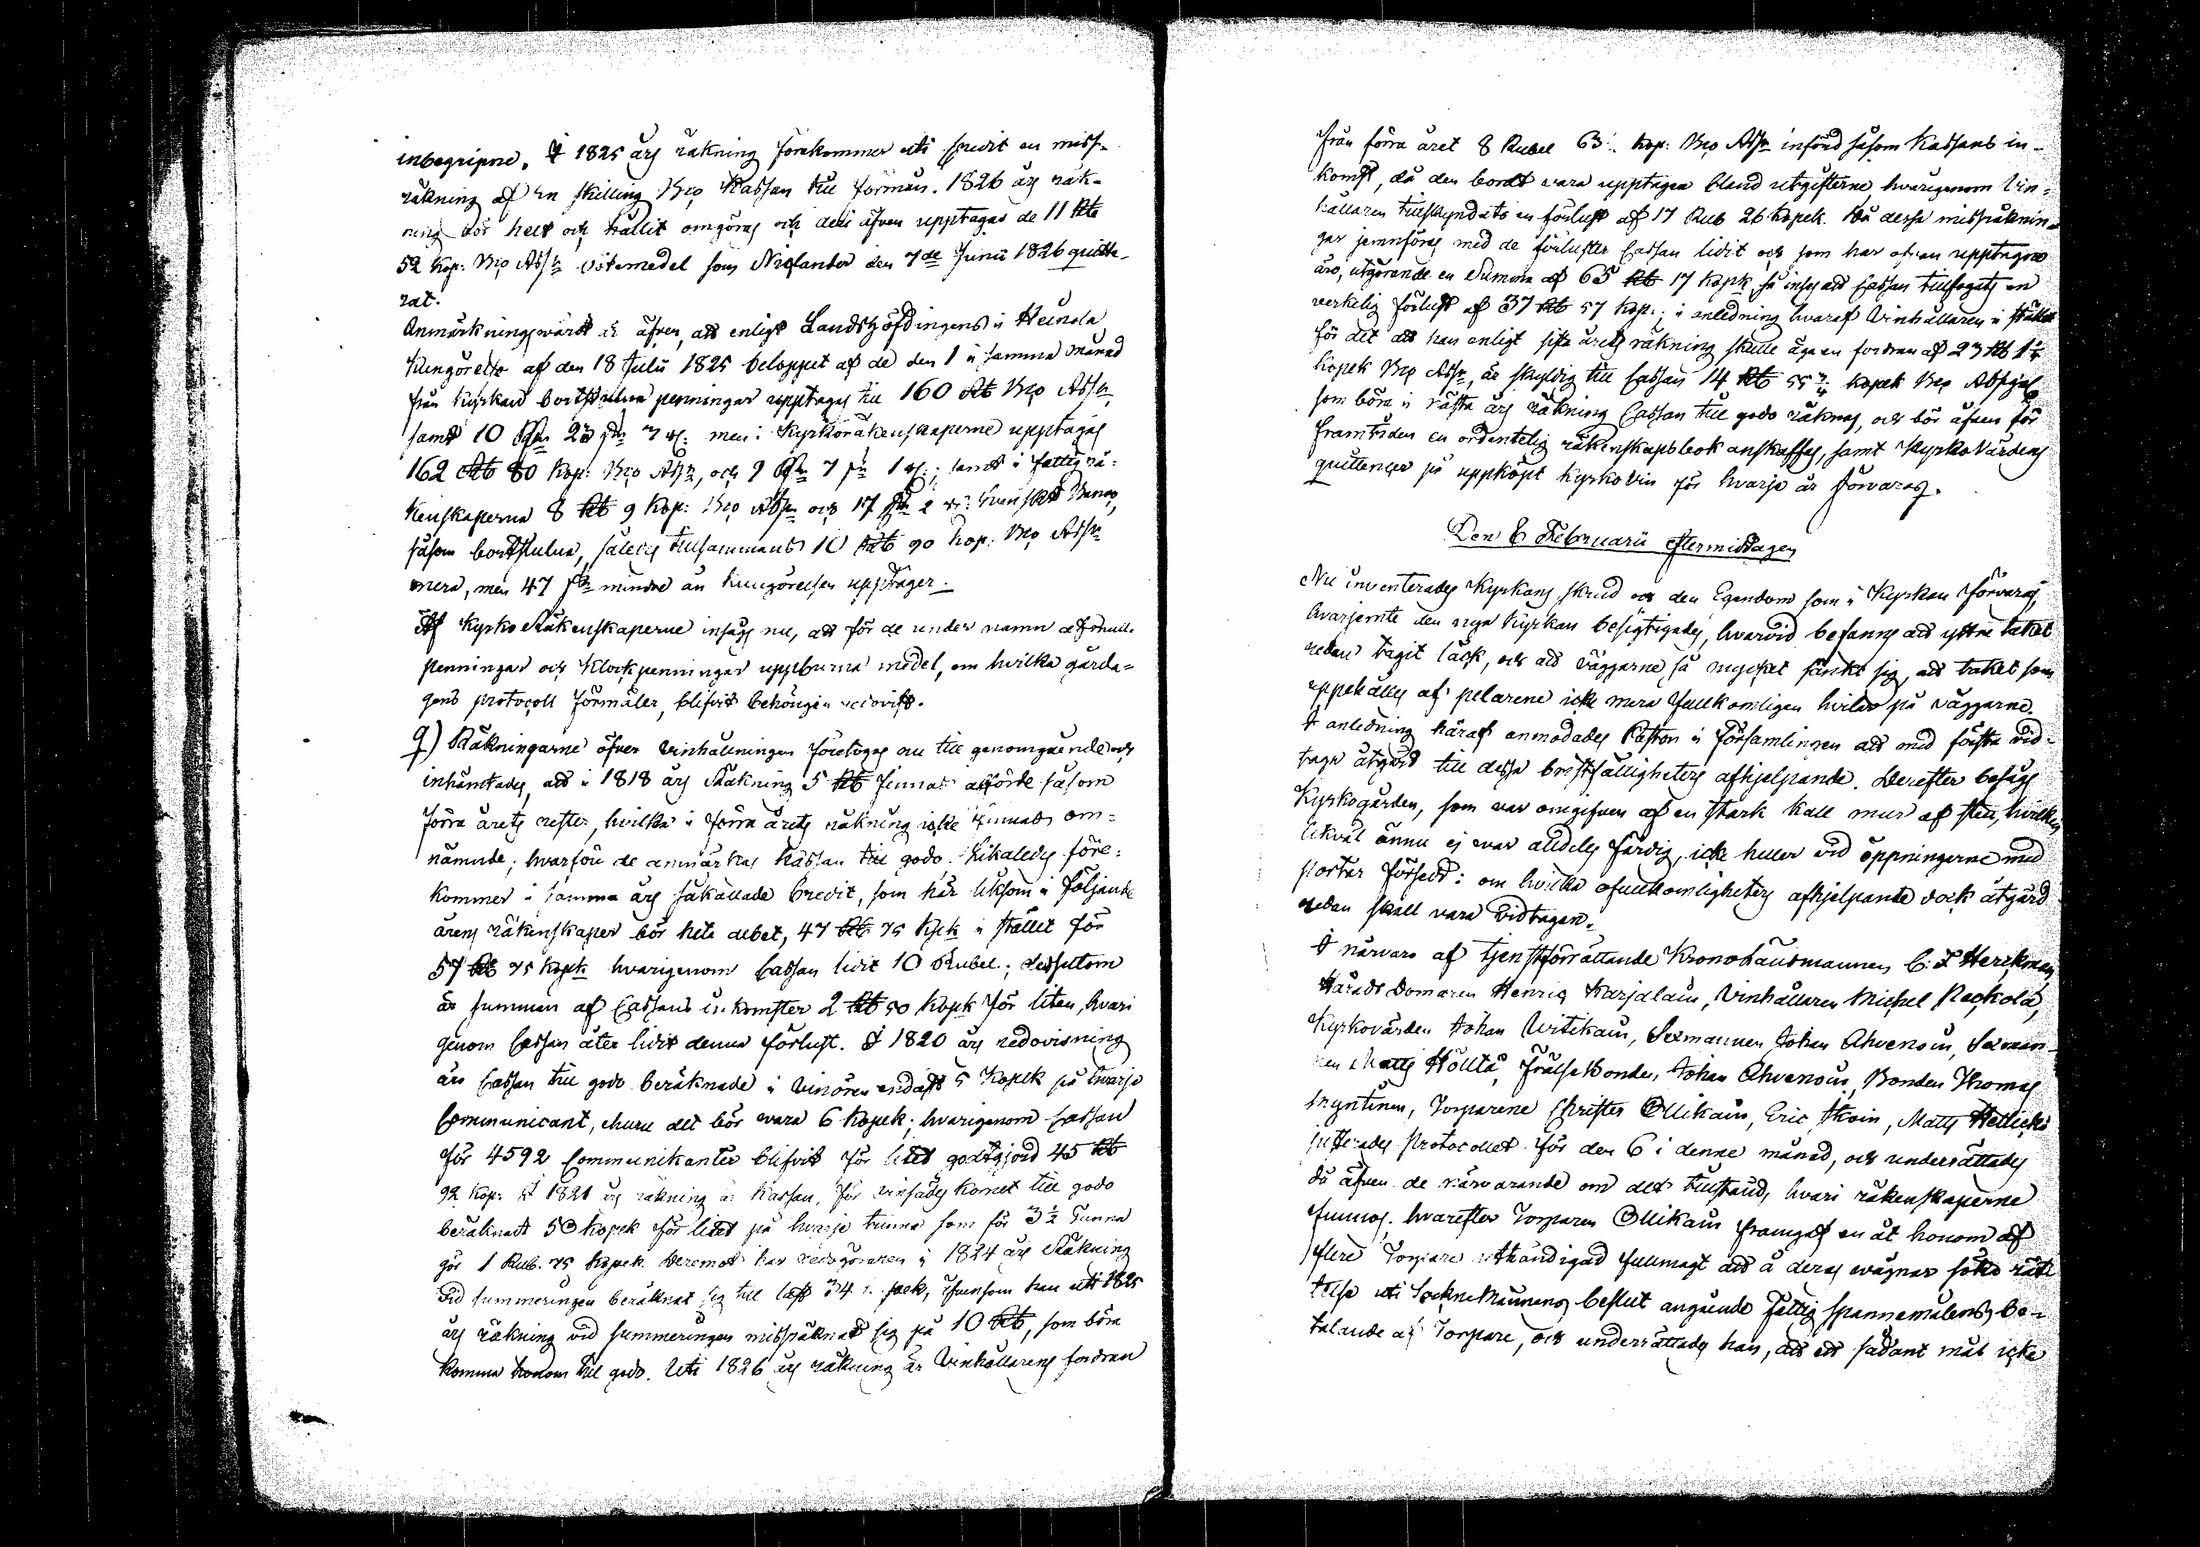 inbegripne. I 1825 års räkning förekommer uti Credit en miss-
räkning af en skilling Bco Kassan till förmån. 1826 års räk-
ning bör helt och hållit omgöras och deri äfven upptagas de 11 Rb
52 Kop: Bco Assr Bötemedel som Niclander den 7de Junii 1826 quitte-
rat.
Anmärkningswärdt är äfven, att enligt Landshöfdingens i Heinola
Kungörelse af den 18 Julii 1825 beloppet af de den 1 i samma månad
från Kyrkan bortstulna penningar upptages till 160 Rb Bco Assr
samt 10 Rdr 23 sk 7 rs: men i Kyrkoräkenskaperne upptages
162 Rb 80 Kop: Bco Assr, och 9 Rdr 7 sk 1 rs; samt i fattigrä-
kenskaperna 8 Rb 9 Kop: Bco Assr och 17 sk 2 rs: Svenskt Banco,
såsom bortstulna, således tillsammans 10 Rb 90 Kop: Bco Assr
mera, men 47 sk mindre än Kungörelsen upptager.
Af Kyrko Räkenskaperne insågs nu, att för de under namn af
penningar och Klockpenningar uppburna medel, om hvilka gårda-
gens protocoll förmäler, blifvit behörigen redovist.
9) Räkningarne öfver Vinhållningen företogos nu till genomgående och
inhämtades, att i 1818 års Räkning 5 Rb finnas afförde såsom
förra årets rester, hvilka i förra årets räkning icke finnas om-
nämnde; hvarföre de anmärkas Kassan till godo. Likaledes före-
kommer i samma års såkallade Credit, som här liksom i följande
årens räkenskaper bör heta debet, 47 Rb 75 Kopk i stället för
57 Rb 75 Kopk hvarigenom Cassan lidit 10 Rubel; dessutom
är summan af Cassans inkomster 2 Rb 50 Kopk för liten, hvari
genom Cassan åter lidit denna förlust. I 1820 års redovisning
äro Cassan till godo beräknade i Vinören endast 5 Kopek på hvarje
Communicant, churu det bör vara 6 Kopek; hvarigenom Cassan
för 4592 Communikanter blifvit för litet godtgjord 45 Rb
92 Kop: I 1821 års räkning är Kassan, för vinsädes kornet till godo
beräknadt 50 kopek för litet på hvarje tunna som för 3 1/2 Tunna
gör 1 Rub. 75 Kopek. Deremot har redogöraren i 1824 års Räkning
vid summeringen beräknat sig till last 34 Kopek, äfvensom han uti 1825
års räkning vid summeringen missräknat sig på 10 Rb, som böra
komma honom till godo. Uti 1826 års räkning är Vinhållarens fordran
från förra året 8 Rubel 63 Kop: Bco Assr införd såsom Kassans in-
komst, då den bordt vara upptagen bland utgifterne hvarigenom Vin-
hållaren tillskyndats en förlust af 17 Rub 26 Kopek. Då dessa missräknin-
gar jemnföras med de förluster Cassan lidit och som här ofvan upptagne
äro, utgörande en Summa af 65 Rb 17 Kopk, så inses att Cassan tillfogats en
verkelig förlust af 37 Rb 57 Kop; i anledning hvaraf Vinhållaren i stället
för det att han enligt sista årets räkning skulle äga en fordran af 23 Rb
Kopek Bco Assr, är skyldig till Cassan 14 Rb 55 Kopek Bco
som böra i nästa års räkning Cassan till godo räknas, och bör äfven för
framtiden en ordentelig räkenskapsbok anskaffas, samt Kyrko Värdens
quittencer på uppköpt Kyrkovin för hvarje år förvaras.
Den 6 Februarii eftermiddagen
Nu inventerades Kyrkans skrud och den Egendom som i Kyrkan förvaras,
hvarjemte den nya Kyrkan besigtigades, hvarvid befanns att yttre taket
redan tagit läck, och att väggarne, så mycket sänkt sig, att taket som
uppehålles af pelarene icke mera fullkomligen hvilar på väggarne.
I anledning häraf anmodades Pastor i församlingen att med första vid-
taga åtgärd till dessa bristfälligheters afhjelpande. Derefter besågs
Kyrkogården, som var omgifven af en stark kall mur af sten, hvilken
likväl ännu ej war alldeles färdig, icke heller vid öppningarne med
portar försedd: om hvilka ofullkomligheters afhjelpande dock åtgärd
redan skall vara vidtagen.
I närvaro af tjenstförrättande Kronolänsmannen C: F Herckman,
Härads Domaren Henric Karjalain, Vinhållaren Michel
Kyrkovärden Johan Uitikain, Sexmannen Johan Ahvenoin, Sexman-
nen Matts Hölltä, Frälse Bonden, Johan Ahvenoin, Bonden Thomas
Myntinen, Torparene Christer Ollikain, Eric, Matts
justerades Protocollet för den 6 i denne månad, och underrättades
då äfven de närvarande om det tillstånd, hvari räkenskaperne
funnos; hvarefter Torparen Ollikain framgaf en åt honom af
flere Torpare uthändigad fullmagt att å deras wägnar söka rätt
telse uti Sockne Männens beslut angående Fattig Spannemålens be-
talande af Torpare, och underrättades han, att ett sådant mål icke